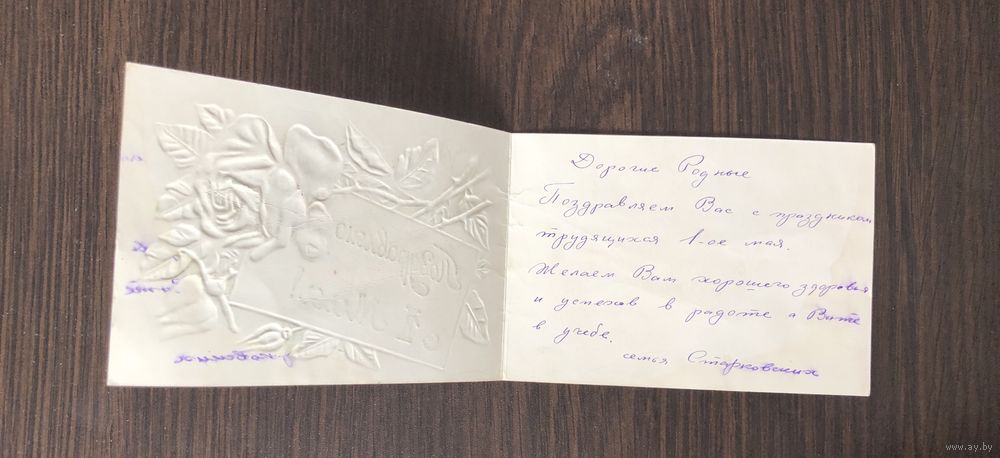 Дорогие Родные
Поздравляем Вас с праздником
трудящихся 1-ое мая.
Желаем Вам хорошего здоровья
и успехов в работе а Вите
в учебе.
семья Старковских
Поздравляю
1 Мая!
www.ay.by